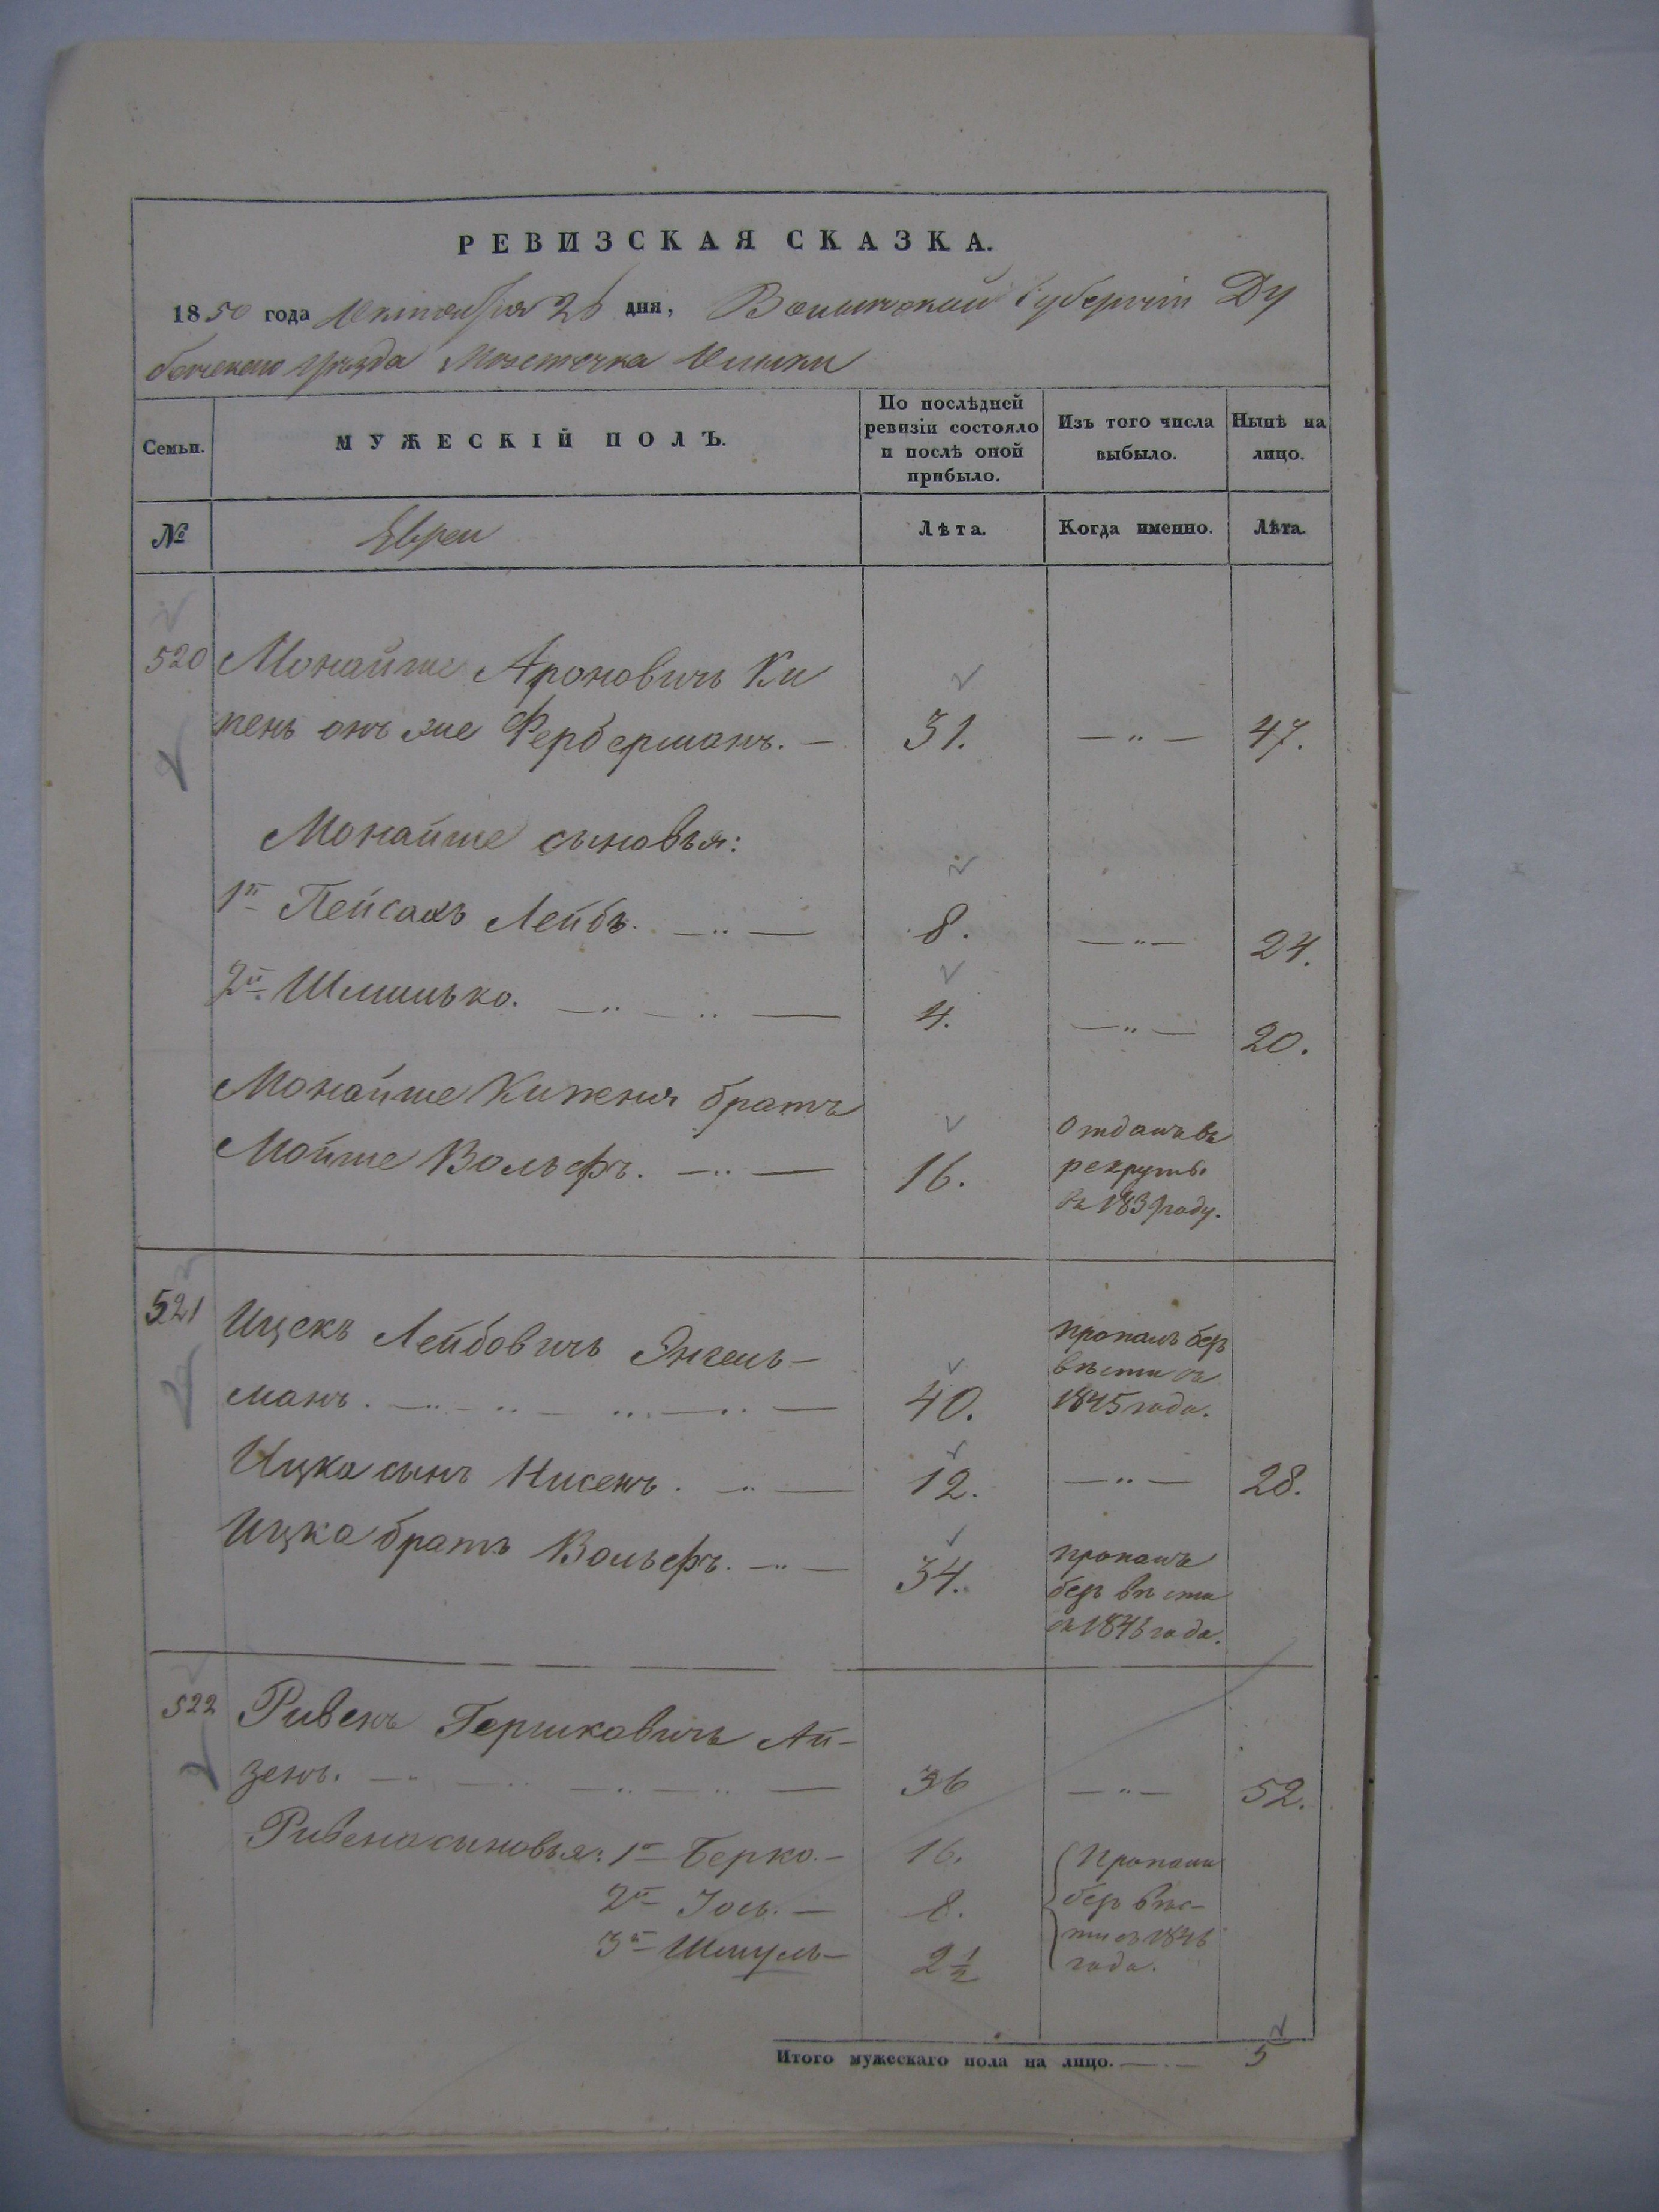 РЕВИЗСКАЯ СКАЗКА.
1850 года Октября 26 дня, Волынской Губерніи Ду
бенскаго уѣзда Мѣстечка
Семьи.
МУЖЕСКІЙ ПОЛЪ.
По послѣдней ревизіи состояло и послѣ оной прибыло.
Изъ того числа выбыло.
Нынѣ на лицо.
№
Евреи
Лѣта.
Когда именно.
Лѣта.
520 Монайше Ароновичъ Ки
пень онъ же Ферберманъ. — 31. —"— 47.
Монайше сыновья:
1й Пейсахъ Лейбъ. 8. —"— 24.
2й Шлиомко. 4. —"— 20.
Монайше Кипеня братъ
Мойше Вольфъ. 16. отданъ въ
рекруты
въ 1839 году.
521 Ицекъ Лейбовичъ Энгель-
манъ. 40. пропалъ безъ
вѣсти съ
1845 года.
Ицка сынъ Нисенъ. 12. —"— 28.
Ицка братъ Вольфъ. 34. пропалъ
безъ вѣсти
съ 1846 года.
522 Ривенъ Гершковичъ Ай-
зенъ. 36 —"— 52.
Ривена сыновья: 1й Берко. — 16. Пропали
2й Iось. — 8. безъ вѣс-
3й Шмуль — 2½ ти съ 1846
года.
Итого мужескаго пола на лицо. 5